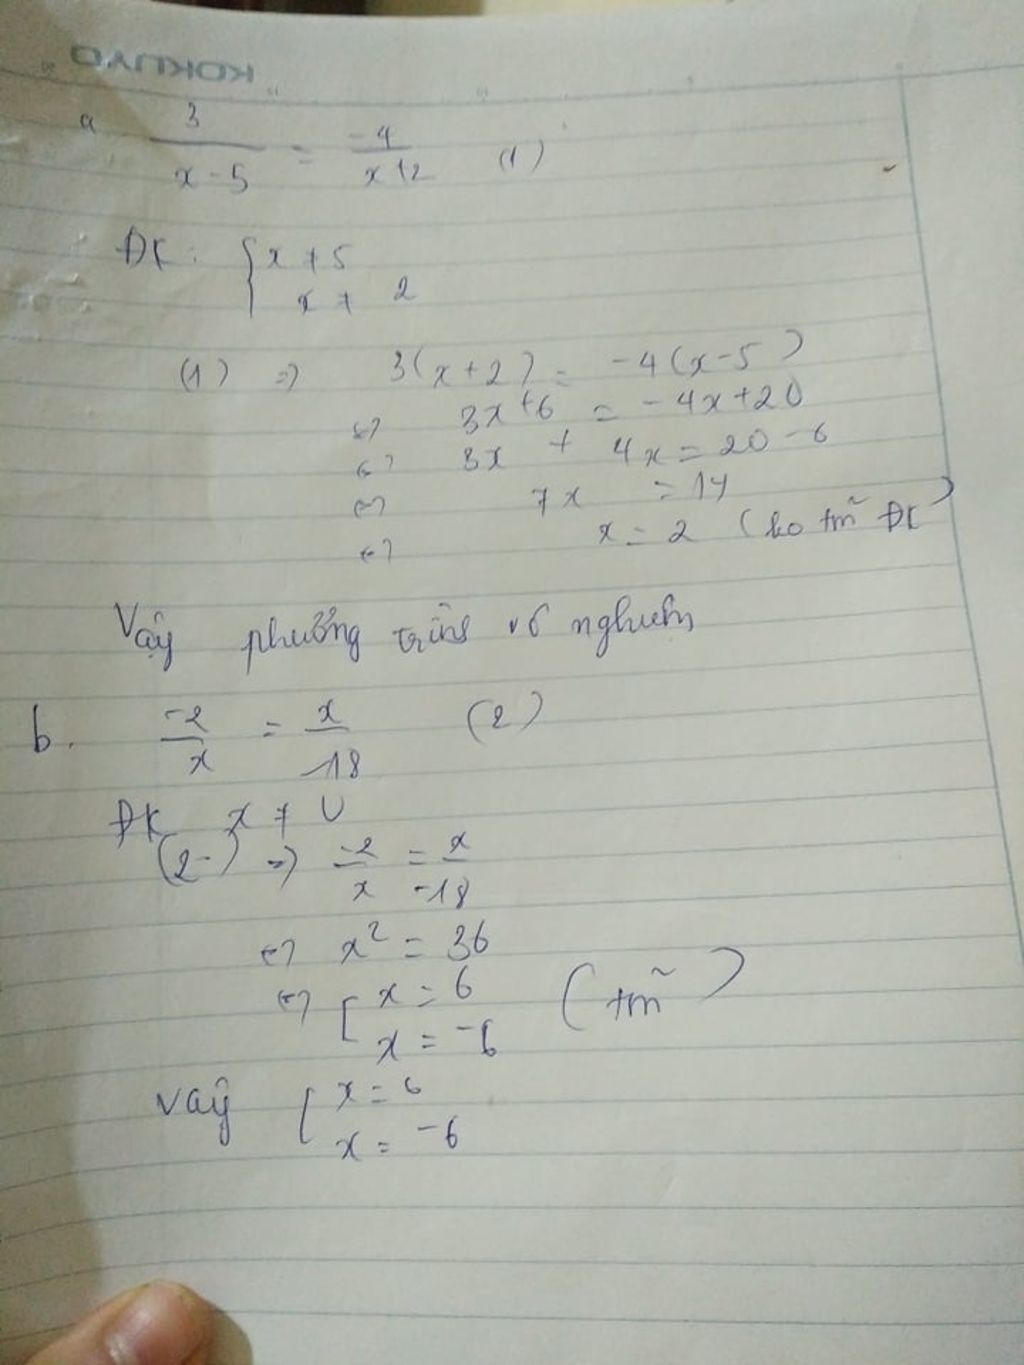 KOKUYO
a 3/(x-5) = -4/(x+2) (1)
ĐK: { x ≠ 5
x ≠ 2
(1) => 3(x+2) = -4(x-5)
<=> 3x+6 = -4x+20
<=> 3x + 4x = 20-6
<=> 7x = 14
<=> x = 2 (ko tm ĐK)
Vậy phương trình vô nghiệm
b. -2/x = x/-18 (2)
ĐK x ≠ 0
(2) => -2/x = x/-18
<=> x² = 36
<=> [ x = 6
x = -6 (tm)
Vậy [ x = 6
x = -6